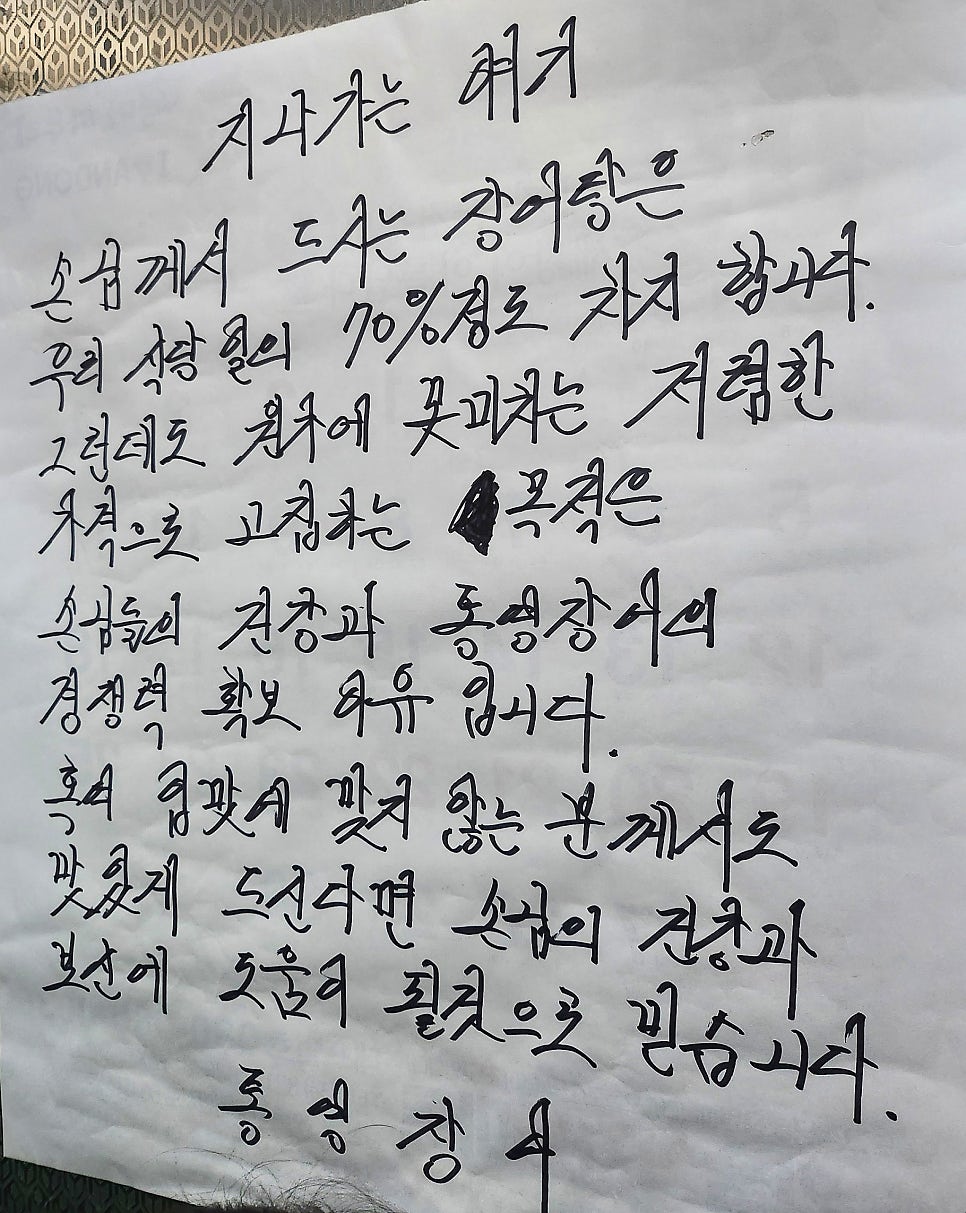 지나가는 얘기
손님께서 드시는 장어탕은
우리 식당 월의 70%정도 차지 합니다.
그런데도 원가에 못미치는 저렴한
가격으로 고집하는 목적은
손님들의 건강과 통영장어의
경쟁력 확보 이유 입니다.
혹여 입맛에 맞지 않는 분께서도
맛있게 드신다면 손님의 건강과
보신에 도움이 될것으로 믿습니다.
통영장어